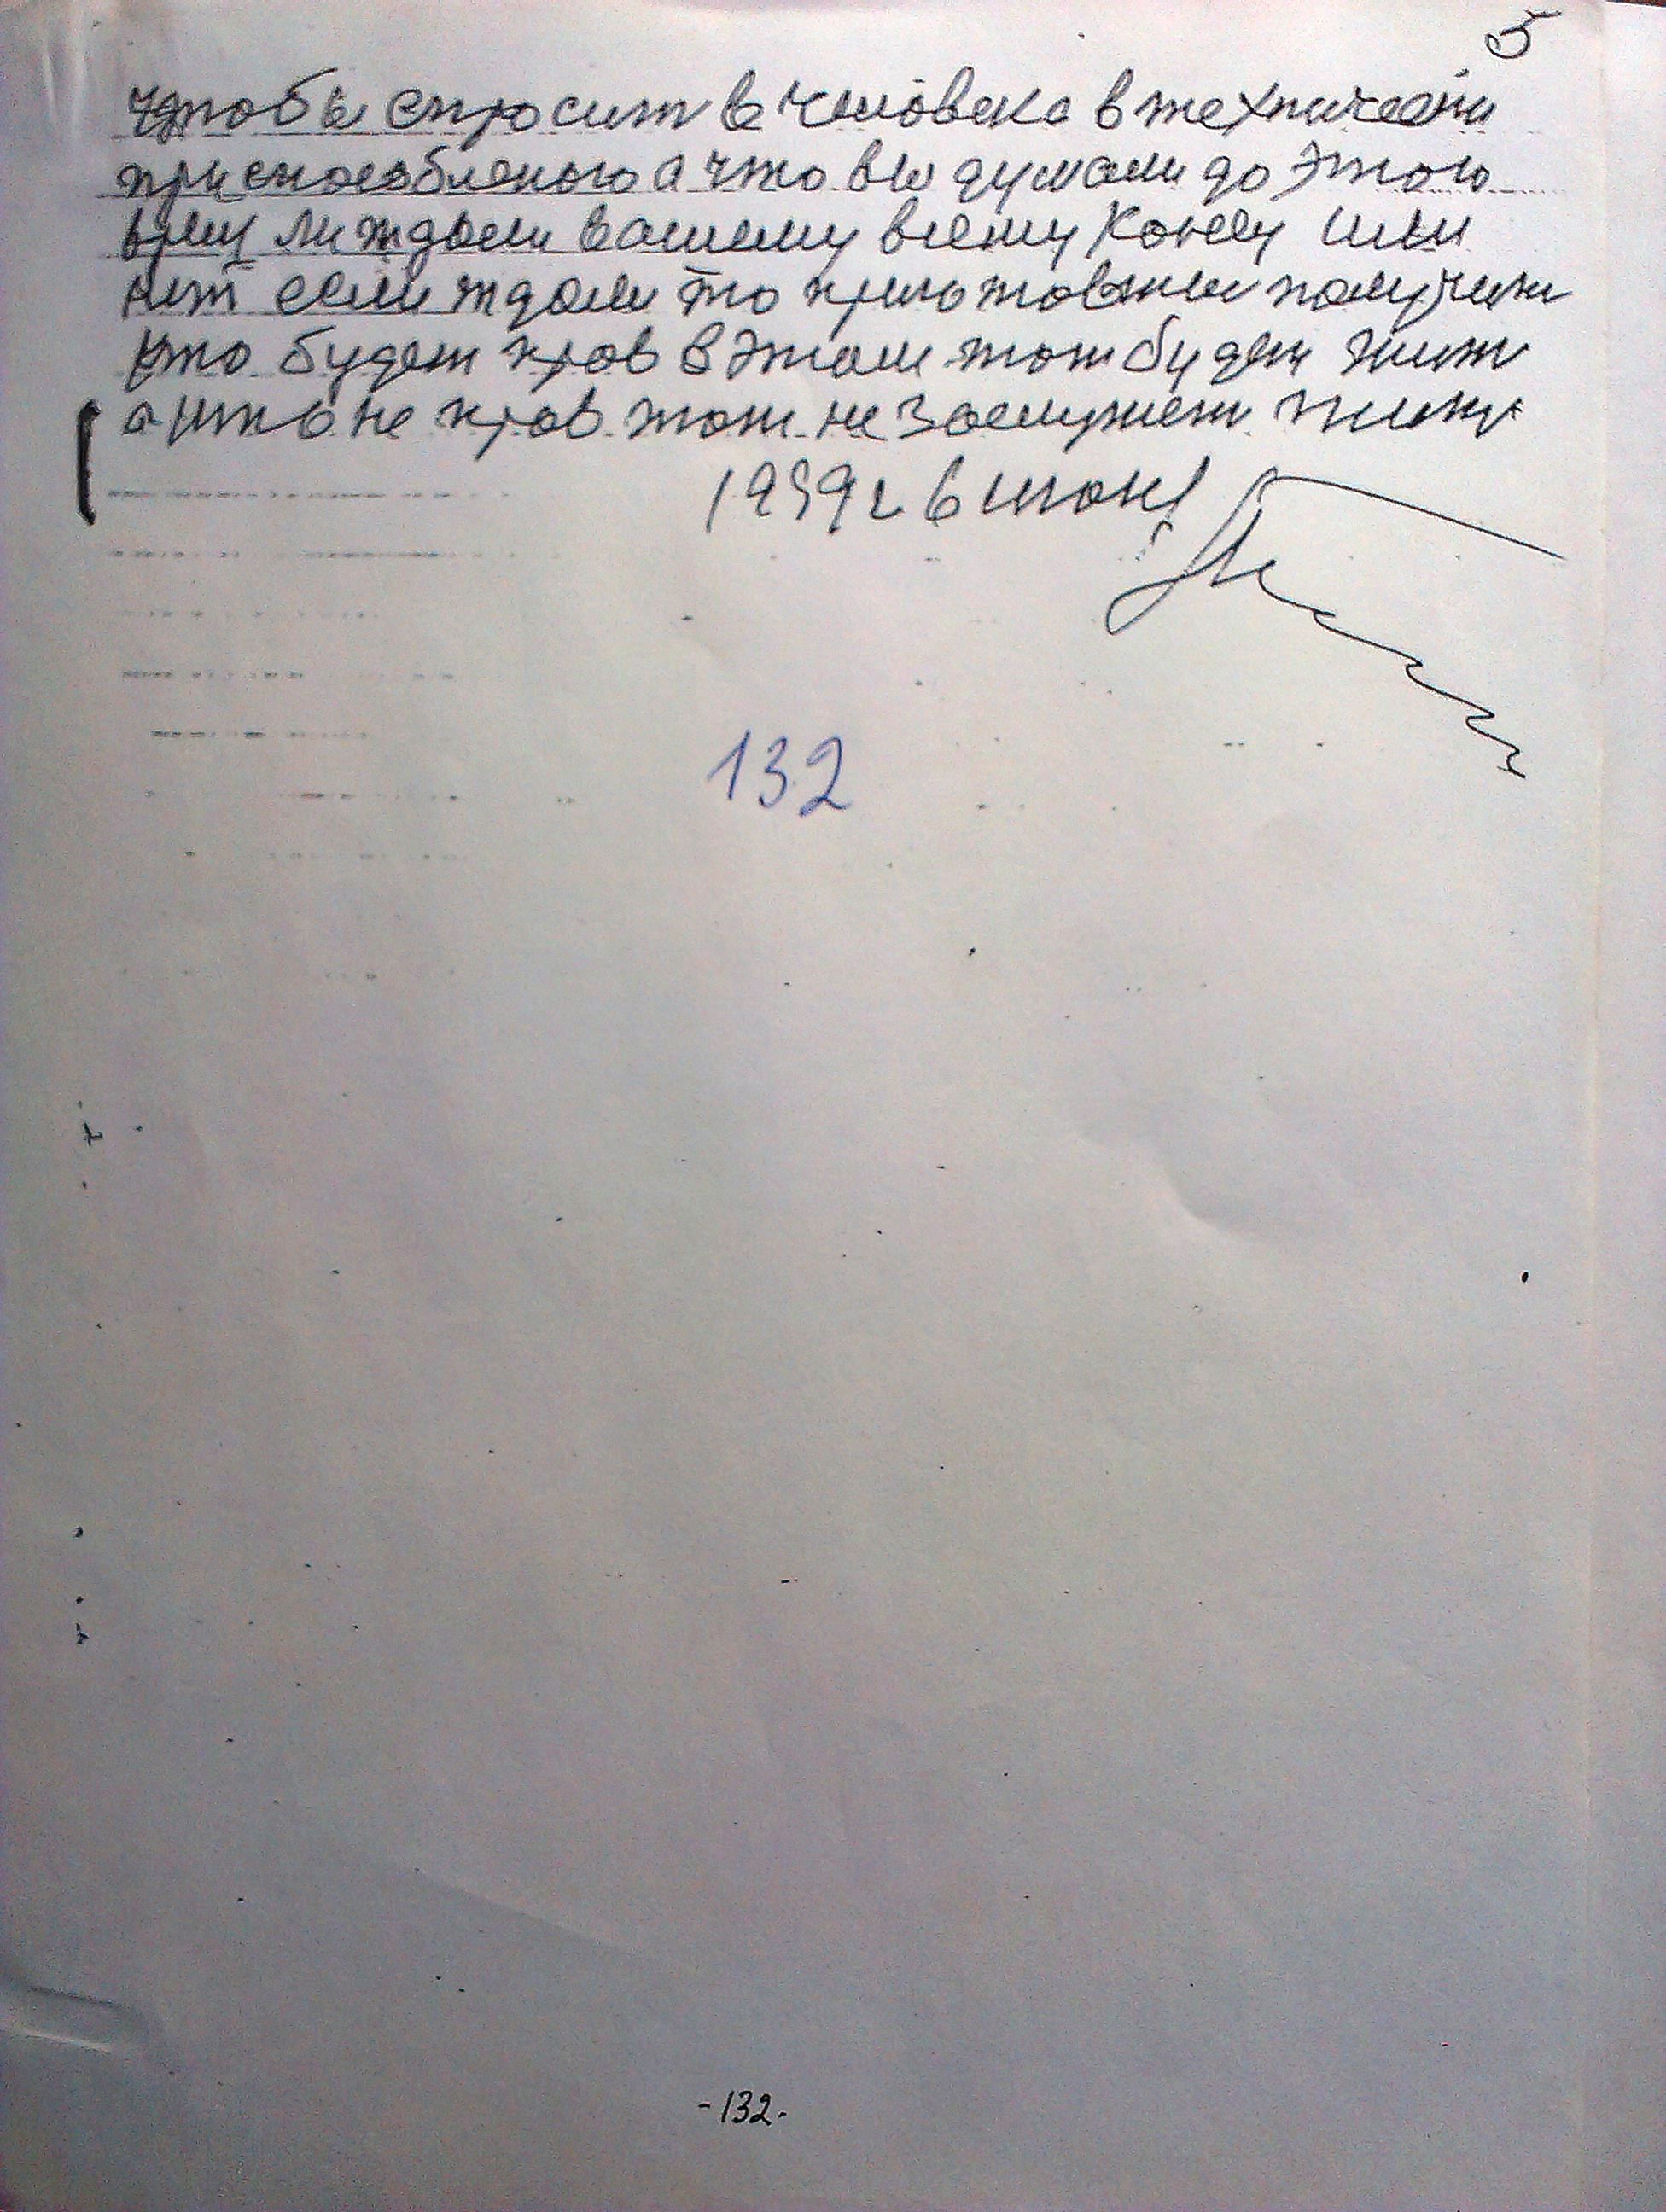 5
чтобы спросит в человека в технически
приспособленого а что вы думали до этого
ли ждали вашему всему концу или
нет если ждали то получит
кто будет прав в этом тот будет жит
а не прав тот не заслужет жит
1959г 6 июня
132
-132-